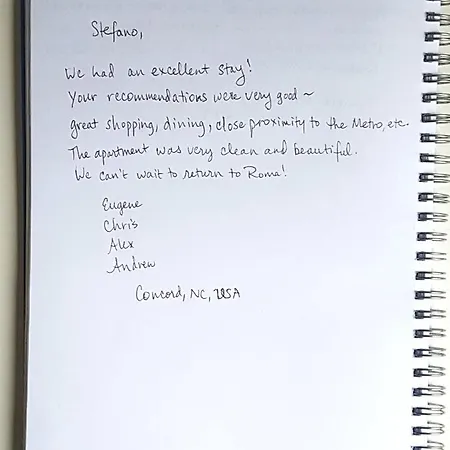 Stefano,
We had an excellent stay!
Your recommendations were very good ~
great shopping, dining, close proximity to the Metro, etc.
The apartment was very clean and beautiful.
We can't wait to return to Roma!
Eugene
Chris
Alex
Andrew
Concord, NC, USA